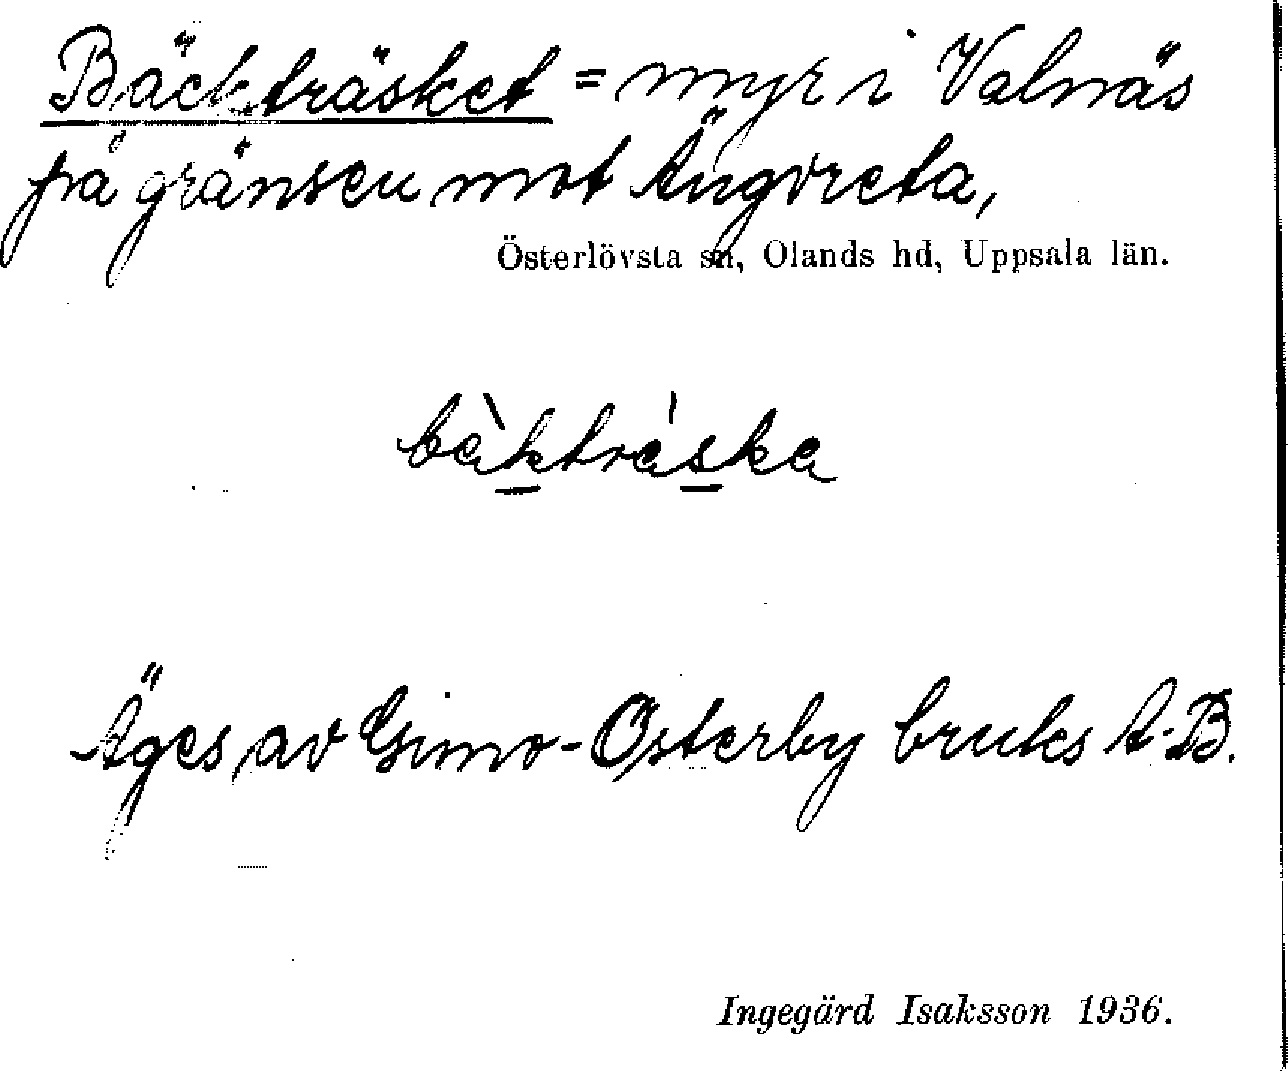 Bäckträsket = myr i Valnäs
på gränsen mot Ängvreta,
Österlövsta sn, Olands hd, Uppsala län.
bàktráska
Äges av Gimo-Österby bruks A.-B.
Ingegärd Isaksson 1936.